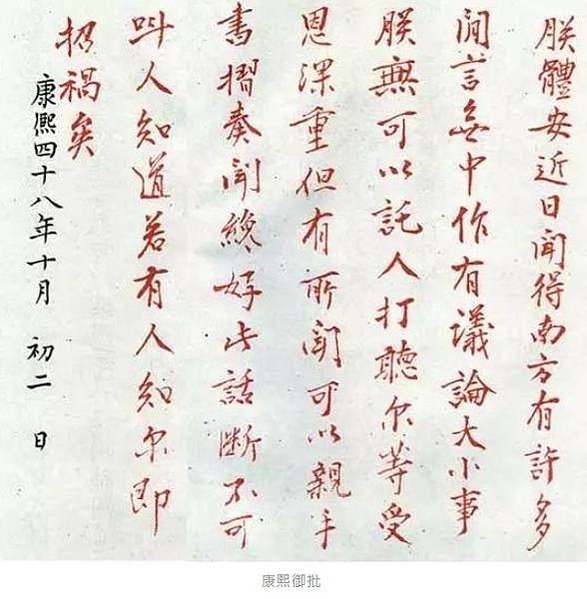 朕體安近日聞得南方有許多
閒言無中作有議論大小事
朕無可以託人打聽尔等受
恩深重但有所聞可以親手
書摺奏聞纔好此話断不可
叫人知道若有人知尔即
招禍矣
康熙四十八年十月 初二 日
康熙御批